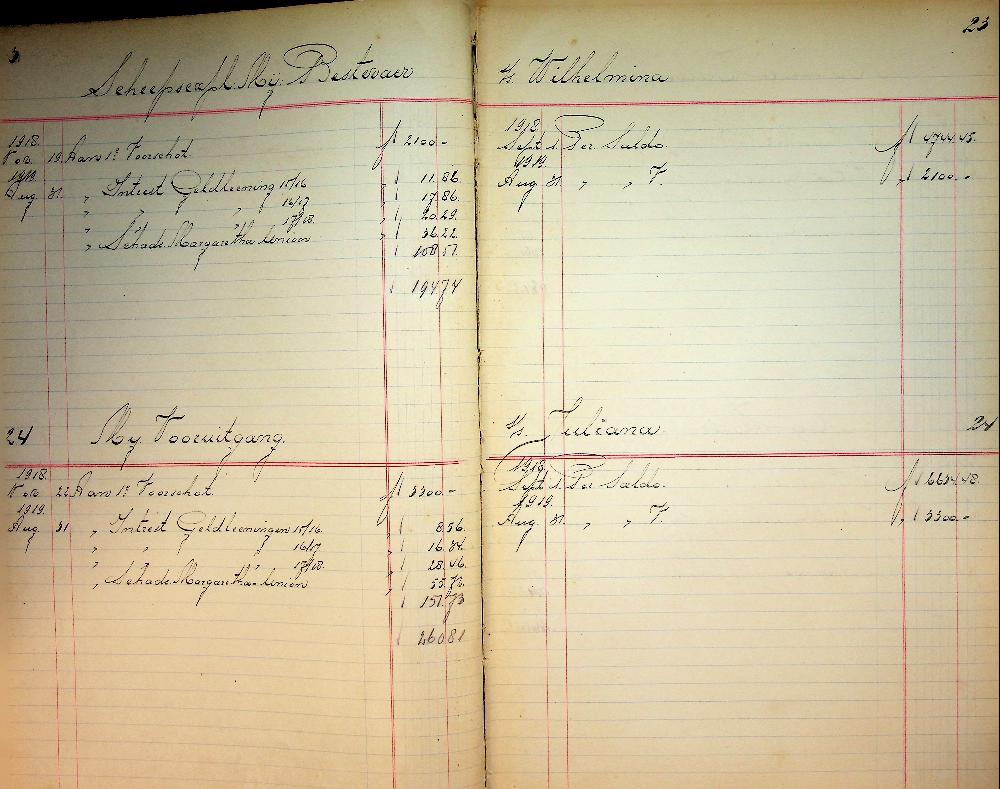 3
Scheepsexpl. My. Bestevaer
1918.
Nov. 19. Aan 1e Voorschot f 2100 -
1919.
Aug. 31. " Intrest Geldleening 15/16 " 11.86.
" " " 16/17 " 17.86
" " " 17/18. " 20.29.
" Schade Margaretha-Union " 36.22.
108 51.
194 74
24 My. Vooruitgang.
1918.
Nov. 22 Aan 1e Voorschot. f 3300 -
1919.
Aug. 31 " Intrest Geldleeningen 15/16. 8.56.
" " " 16/17 16.34.
" " " 17/18. 28.46.
" Schade Margaretha-Union " 55.72.
151.73
260 81
23
s/s. Wilhelmina
1918.
Sept 1. Per Saldo. f 4744.45.
1919.
Aug. 31. " " V. " 2100. -
s/s. Juliana. 24
1918.
Sept 1. Per Saldo. f 6634.48.
1919.
Aug. 31. " " V. " 3300 -